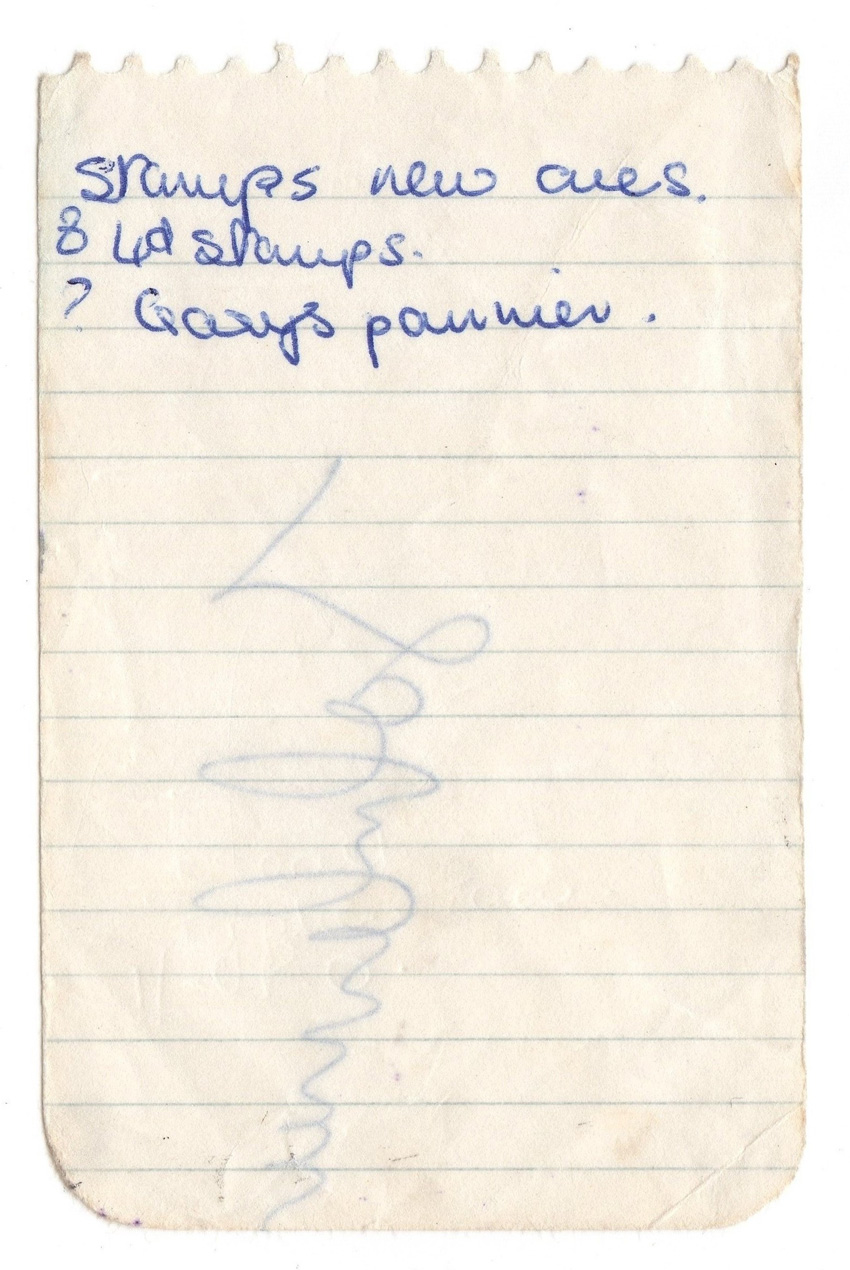 Stamps new ones.
8 4d stamps.
? Garys pannier.